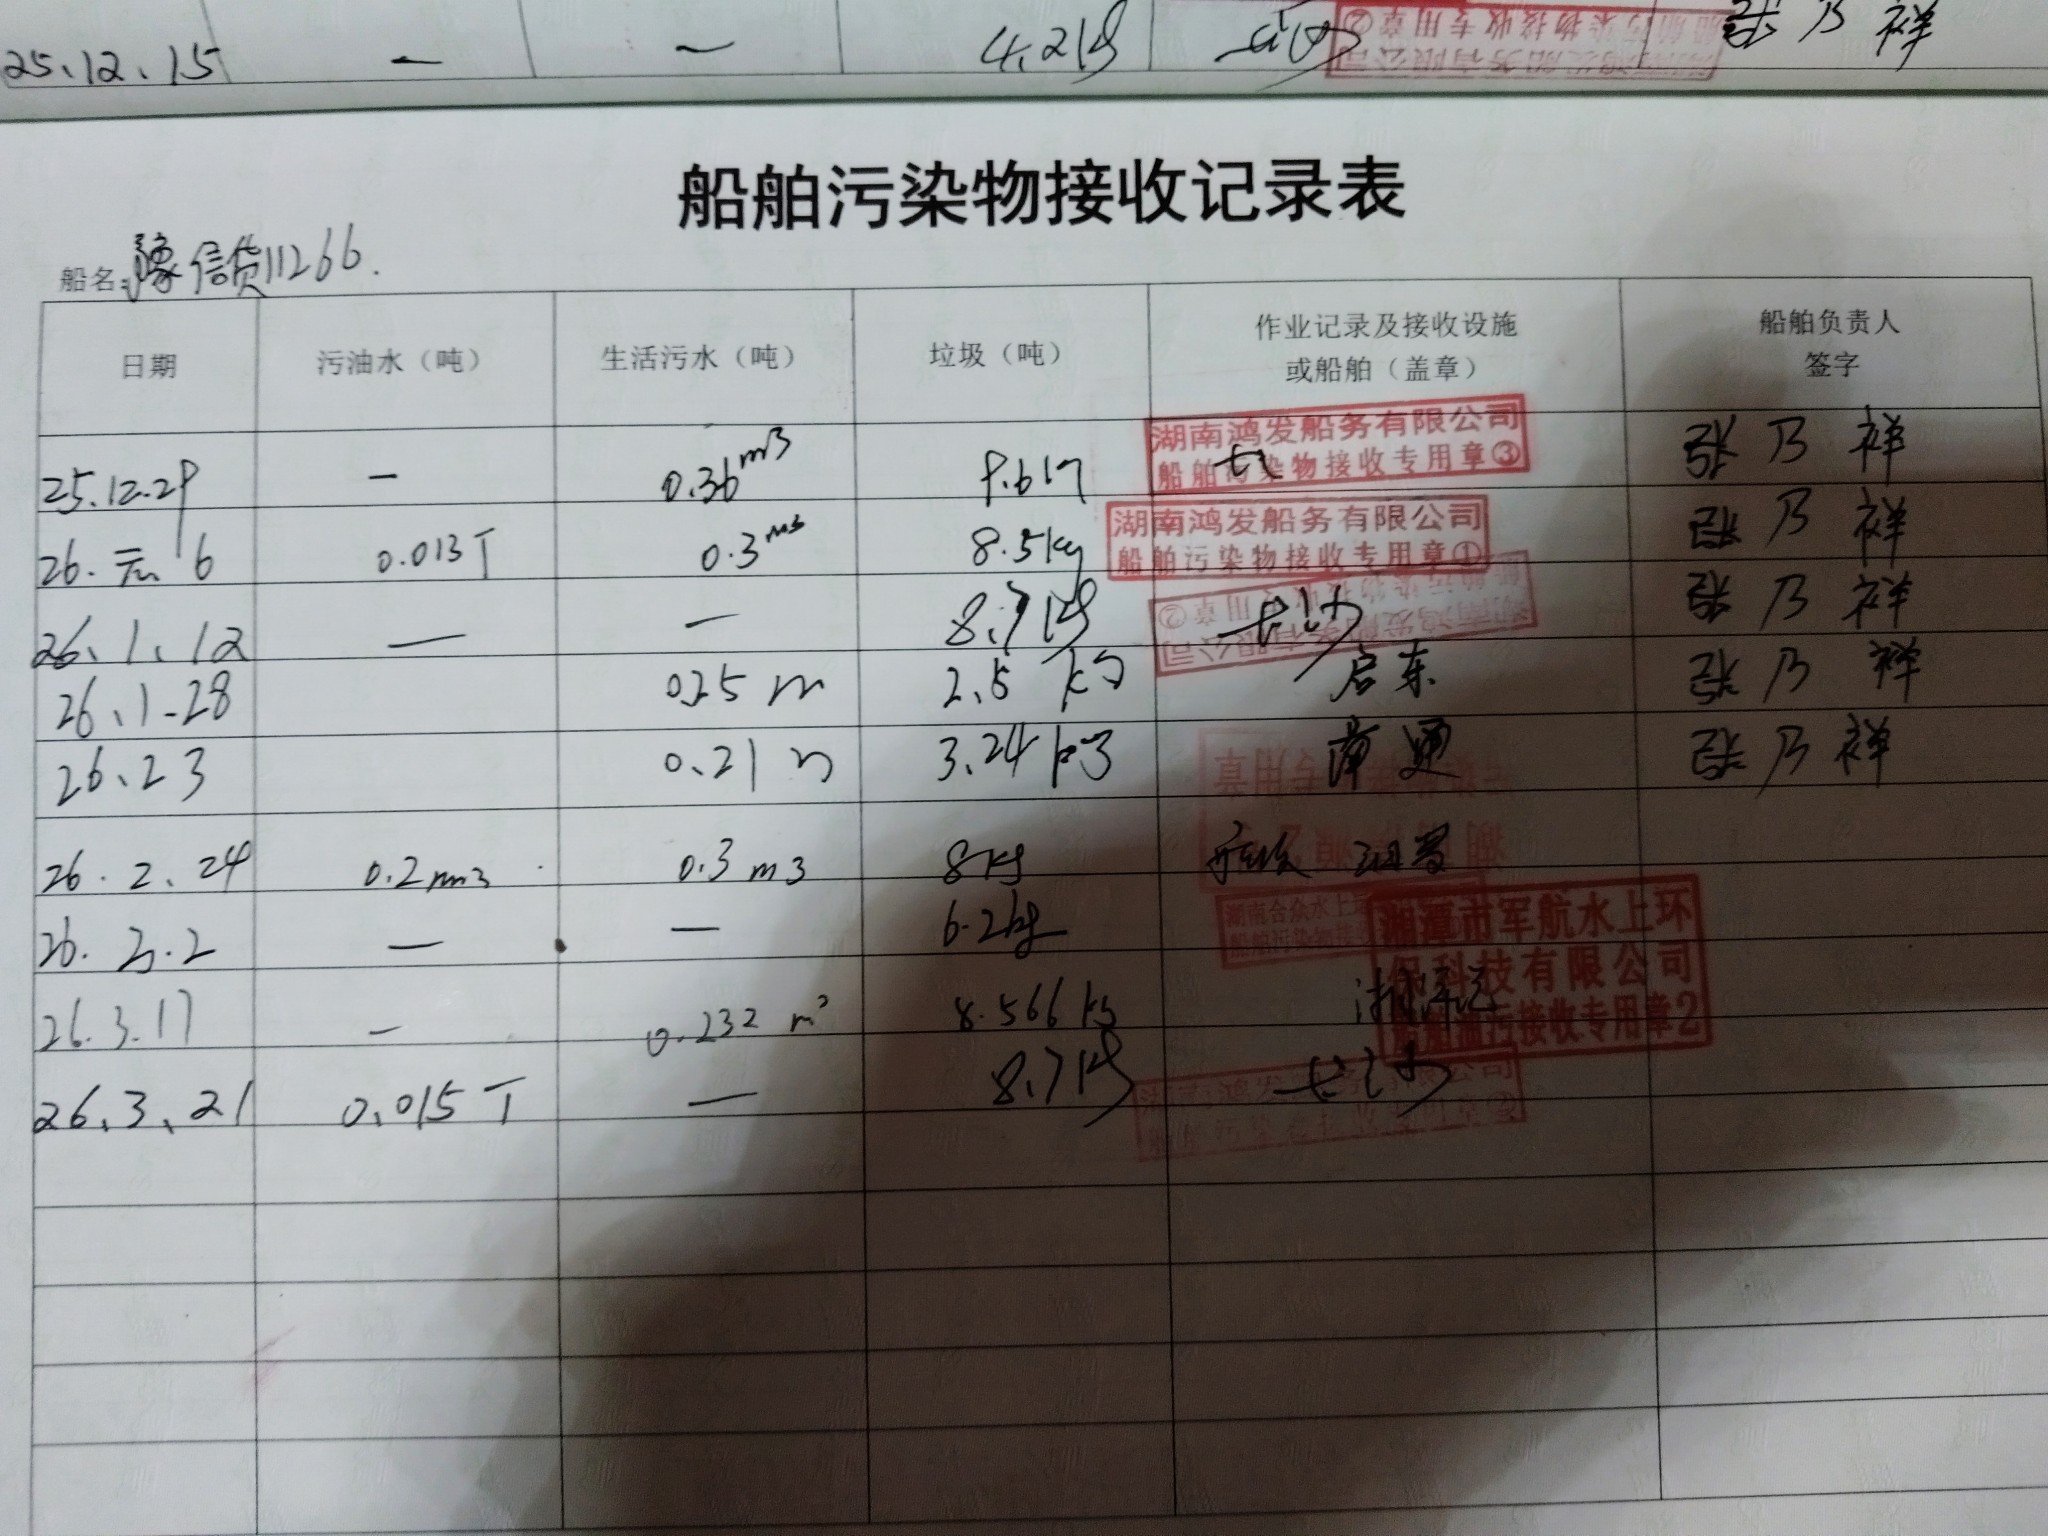 25.12.15 — — 4.2kg 张乃祥
船舶污染物接收记录表
船名:豫信货11266.
日期 污油水（吨） 生活污水（吨） 垃圾（吨） 作业记录及接收设施或船舶（盖章） 船舶负责人签字
湖南鸿发船务有限公司
船舶污染物接收专用章③
25.12.29 — 0.36m3 9.6kg 张乃祥
湖南鸿发船务有限公司
船舶污染物接收专用章①
26. 元 6 0.013T 0.3m3 8.5kg 张乃祥
26.1.12 — — 8.7kg 长沙 张乃祥
26.1.28 0.25m 2.5kg 启东 张乃祥
26.2.3 0.21 3.24kg 南通 张乃祥
26.2.24 0.2m3 0.3m3 8kg
26.3.2 — — 6.2kg
湘潭市军航水上环
保科技有限公司
船舶油污接收专用章2
26.3.17 — 0.232 m³ 8.566kg
26.3.21 0.015T — 8.7kg 长沙